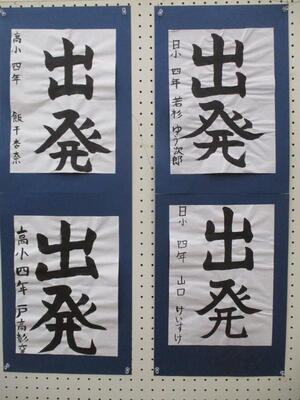 出発
高小 四年 飯干杏奈
出発
日小 四年 若杉 ゆう次郎
出発
高小 四年 戸高彰文
出発
日小 四年 山口 けいすけ